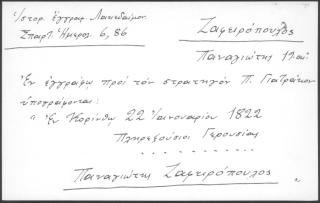 Ἱστορ. ἔγγραφ. Λακεδαίμον.
Σπαρτ. Ἡμερολ. 6, 86
Ζαφειρόπουλος
Παναγιώτης
Ἐν ἐγγράφῳ πρὸς τὸν στρατηγὸν Π. Γιατράκον
ὑπογράφονται:
"Ἐν Κορίνθῳ 22 Ἰανουαρίου 1822
Πληρεξούσιοι Γερουσίας
. . . . . . . . .
Παναγιώτης Ζαφειρόπουλος
"